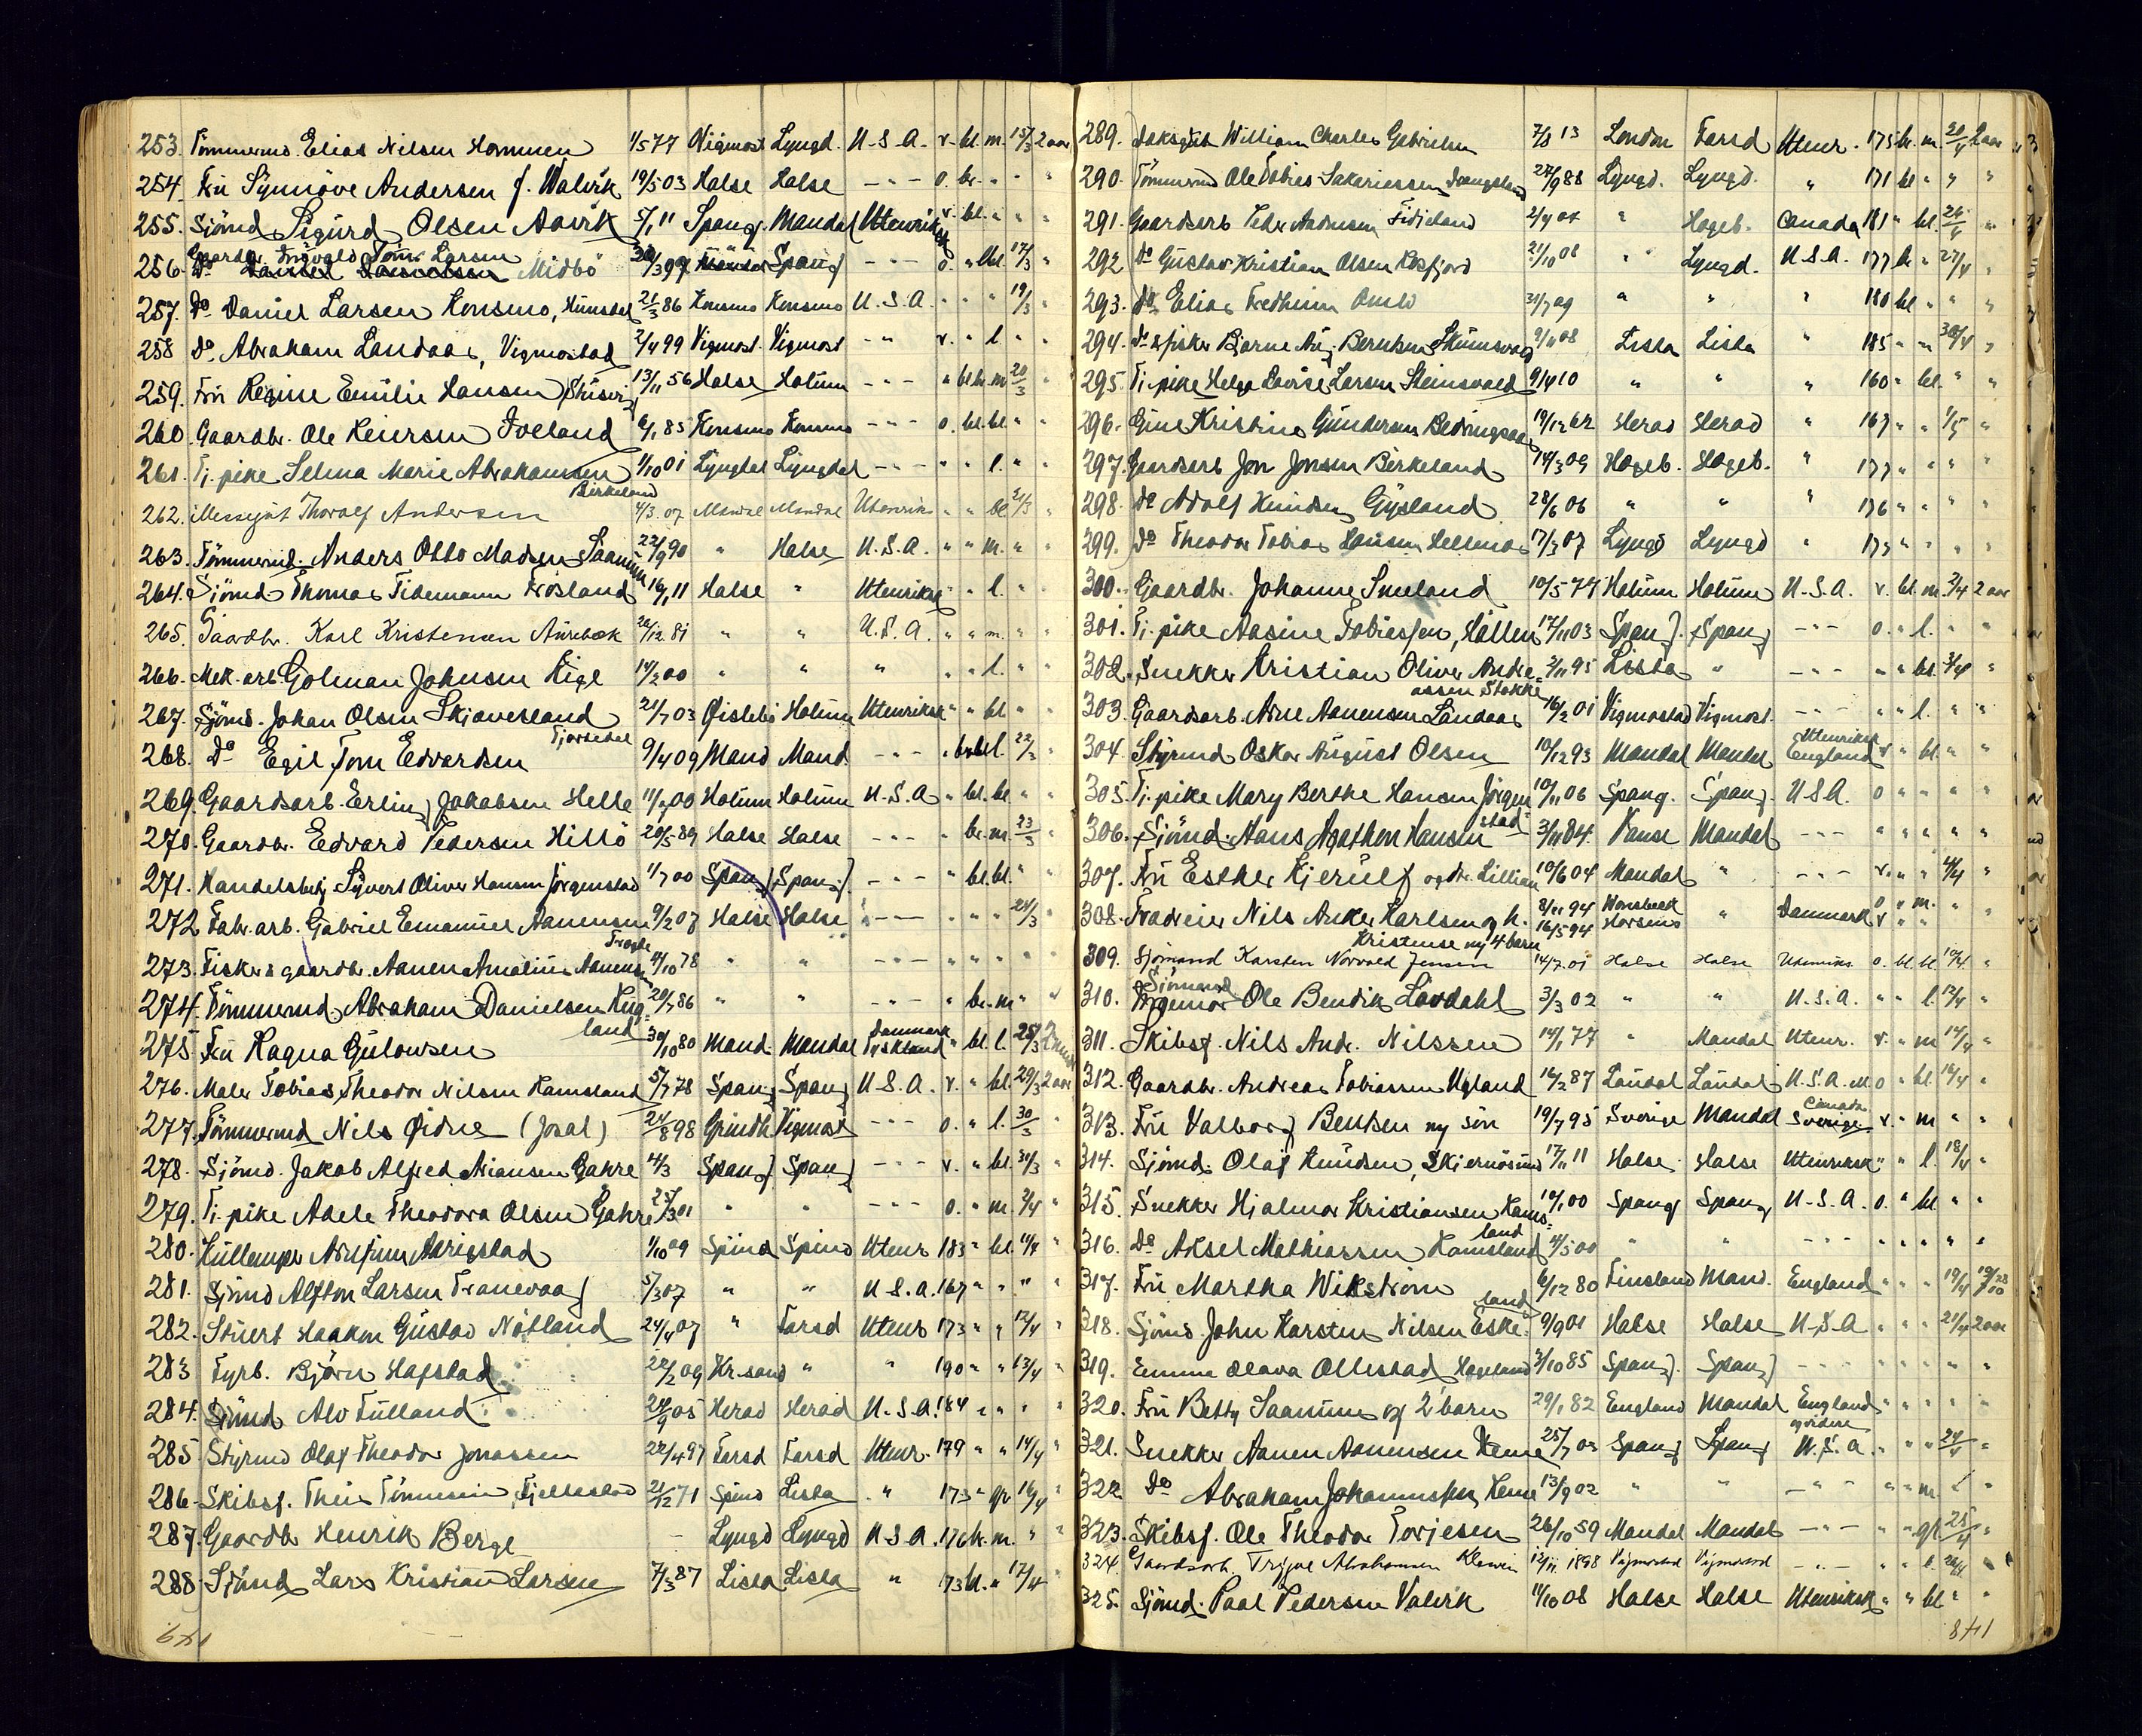 253. Tömmermd. Elias Nilsen Hommen 1/5 77 Vigmost Lyngd. U.S.A. v. bl. m. 15/3 2 aar
254. Fru Synnöve Andersen f. Valvik 19/5 03 Halse Halse -"- o. br. " " "
255. Sjömd Sigurd Olsen Aavik 5/1 11 Spang. Mandal Utenriks v. bl. " " "
Gaardbr. Tom Larsen
256. Do Midbö Spang -"- o. " bl. 17/3 "
257. Do Daniel Larsen Konsmo, 21/3 86 Konsmo Konsmo U.S.A. " " " 19/3 "
258 Do Abraham Landaas, Vigmostad 2/4 99 Vigmost. Vigmost -"- v. " l. " "
259. Fru Regine Emilie Hansen 13/11 56 Halse Holum -"- " bl. br. m. 20/3 "
260. Gaardbr. Ole Reiersen Ioeland 85 Konsmo Konsmo -"- o. bl. bl. " "
261. Tj. pike Selma Marie Abrahamsen 1/10 01 Lyngdal Lyngdal -"- " " l. " "
Birkeland
262. Messegut Thoralf Andersen 4/3 07 Mandal Mandal Utenriks " " bl. 21/3 "
263. Tömmermd. Anders Otto Madsen Saanum 22/9 90 " Halse U.S.A. " " m. " "
264. Sjömd Thomas Tidemann Frösland 11 Halse " Utenriks " " l. " "
265. Gaardbr. Karl Kristensen Aurebæk 26/12 81 " " U.S.A. " " m. " "
266. Mek. arb. Golman Johnsen Eige 14/2 00 " " " " " l. " "
267. Sjömd. Johan Olsen Skjævesland 21/7 03 Øislebö Holum Utenriks " " bl. " "
268. Do Egil Tom Edvardsen 9/4 09 Mand Mand -"- " br. bl. l. 22/3 "
269. Gaardsarb. Erling Jakobsen Helle 00 Holum Holum U.S.A. " bl. bl. " "
270. Gaardbr. Edvard Pedersen Hillö 20/5 89 Halse Halse -"- " br. m. 23/3 "
271. Handelsbetj. Sigvert Oliver Hansen Jörgenstad 1/7 00 Spang Spang -"- " bl. bl. " "
272 Fabr. arb. Gabriel Emanuel Aanensen 9/2 07 Halse Halse -"- " " " 24/3 "
273. Fisker & gaardbr. Aanen Amalius Aanensen 4/10 78 " " -"- " " " " "
274. Tömmermd. Abraham Danielsen Hug- 20/7 86 " " -"- " br. m " "
land
275 Fru Ragna Gulowsen 30/10 80 Mand. Mandal Danmark Tyskland " bl. l. 25/3
276. Maler Tobias Theodor Nilsen Ramsland 5/7 78 Spang Spang U.S.A. v. " bl. 29/3 2 aar
277. Tömmermd Nils Øidne (Josal) 24/8 98 Grindh. Vigmost -"- o. " l. 30/3 "
278. Sjömd. Jakob Alfred Ariansen Gahre Spang Spang -"- v. " bl. 30/3 "
279. Tj. pike Adele Theodora Olsen Gahre 25/3 01 " " -"- o. " m. 2/4 "
280. Arnfinn Aarigstad 1/10 09 Spind Spind Utenr 183 " bl. "
281. Sjömd Alfton Larsen Tranevaag 5/3 07 " " U.S.A. 167 " " " "
282. Stuert Haakon Gustav Nötland 24/4 07 " Farsd Utenr 173 " " 12/4 "
283 Fyrb. Björn Hafstad 22/2 09 Kr.sand " " 190 " " 13/4 "
284. Sjömd Alv Fulland 05 Herad Herad U.S.A. 184 " " " "
285. Styrmd Olaf Theodor Jonassen 22/4 97 Farsd Farsd Utenr. 179 " " 14/4 "
286. Skibsf. Theis Tönnesen, Fjellestad 21/12 71 Spind Lista " 173 " gr. 16/4 "
287. Gaardbr Henrik Berge - Lyngd Lyngd U.S.A. 176 br. m. " "
288. Sjömd Lars Kristian Larsen 7/3 87 Lista Lista " 173 bl. " 17/4 "
289. William Charles Gabrielsen 7/8 13 London Farsd Utenr. 175 br. m. 20/4 2 aar
290. Tömmermd Ole Tobias Sakariassen 27/9 88 Lyngd. Lyngd. " 171 bl " " "
291. Gaardsarb. Peder Andreas Fidjeland 2/4 04 " Hægeb. Canada 181 " bl. 26/4 "
292 Do Gustav Kristian Olsen Rosfjord 21/10 08 " Lyngd. U.S.A. 177 br " 27/4 "
293. Do Elias Fredheim 31/7 09 " " " 180 bl " " "
294. Do & fisker Bjarne Aug. Berntsen 08 Lista Lista " 185 " " 30/4 "
295. Tj. pike Helga Lovise Larsen Steinsvold 9/4 10 " " " 160 " bl. " "
296. Gine Kristine Gundersen 19/12 62 Herad Herad " 167 " " 1/5 "
297. Gaardsarb Jon Jonsen Birkeland 14/3 09 Hægeb. Hægeb. " 177 " " " "
298. Do Adolf Knudsen Gysland 28/6 06 " " " 176 " " " "
299. Do Theodor Tobias Hansen 17/3 07 Lyngd Lyngd " 175 " " " "
300. Gaardbr. Johannes Smeland 10/5 74 Holum Holum U.S.A. v. bl. m. 2/4 2 aar
301. Tj. pike Aasine Tobiassen, Hallem 17/11 03 Spang. Spang -"- o. " l. " "
302. Snekker Kristian Oliver Andre- 2/11 95 Lista " -"- " " bl. 3/4 "
assen Stokke
303. Gaardsarb. Arne Aanensen Landaas 16/2 01 Vigmostad Vigmost. -"- " " l. " "
304. Styrmd Oskar August Olsen 10/12 93 Mandal Mandal Utenriks England v. " bl. " "
305. Tj. pike Mary Berthe Hansen Jörgen- 10/11 06 Spang. Spang. U.S.A. o " " " "
stad
306. Sjömd. Hans Agathon Hansen 3/11 84. Vanse Mandal -"- " " " " "
307. Fru Esther Kjerulf og dtr. Lillian 10/6 04 Mandal " -"- v. " " 4/4 "
308. Nils Anker Karlsen og h. 8/11 94 Horsens " Danmark o " m. " "
Kristense og 4 barn 16/5 94
309. Sjömand Karsten Norvald Jensen 14/7 01 Halse Halse Utenriks o. bl. bl. "
Sjömand
310. Ole Bendik Lövdahl 3/3 02 " " U.S.A. " " l. 12/4 "
311. Skibsf. Nils Andr. Nilssen 14/1 77 " Mandal Utenr. v. " m 14/4 "
312. Gaardbr. Andreas Tobiassen Ugland 16/2 87 Laudal Laudal U.S.A. o " bl. 16/4 "
313. Fru Valborg Bentsen og sön 19/7 95 Sverige Mandal Canada Sverige v. " m " "
314. Sjömd. Olaf Knudsen, Skjernösund 17/11 11 Halse Halse Utenriksk " " l. 18/4 "
315. Snekker Hjalmar Kristiansen Rams- 00 Spang Spang U.S.A. o. " bl. " "
land
316. Do Aksel Mathiassen Ramsland 4/5 00 " " -"- " " " " "
317. Fru Martha Wikström 6/12 80 Finsland Mand. England " " " 19/4
318. Sjömd. John Karsten Nilsen Eske- 9/9 01 Halse Halse U.S.A " " " 21/4 2 aar
land
319. Emma Olava Ollestad 85 Spang. Spang -"- " " " " "
320. Fru Betty Saanum og 2 barn 29/1 82 England Mandal England " " " " "
og videre
321. Snekker Aanen Aanensen 25/7 03 Spang Spang U.S.A. " " " 24/4 "
322. Do Abraham Johannessen 13/9 02 " " -"- " " m. " "
323. Skibsf. Ole Theodor Torjesen 26/10 59 Mandal Mandal -"- " " gr. 25/4 "
324. Gaardsarb. Trygve Abrahamsen 1898 Vigmostad Vigmostad -"- " " l. "
325. Sjömd. Paal Pedersen Valvik 08 Halse Halse Utenriksk " " bl " "